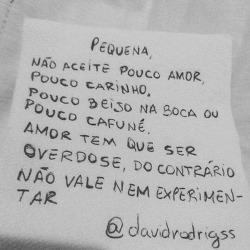 PEQUENA,
NÃO ACEITE POUCO AMOR,
POUCO CARINHO.
POUCO BEIJO NA BOCA OU
POUCO CAFUNÉ.
AMOR TEM QUE SER
OVERDOSE, DO CONTRÁRIO
NÃO VALE NEM EXPERIMEN-
TAR
@davidrodrigss